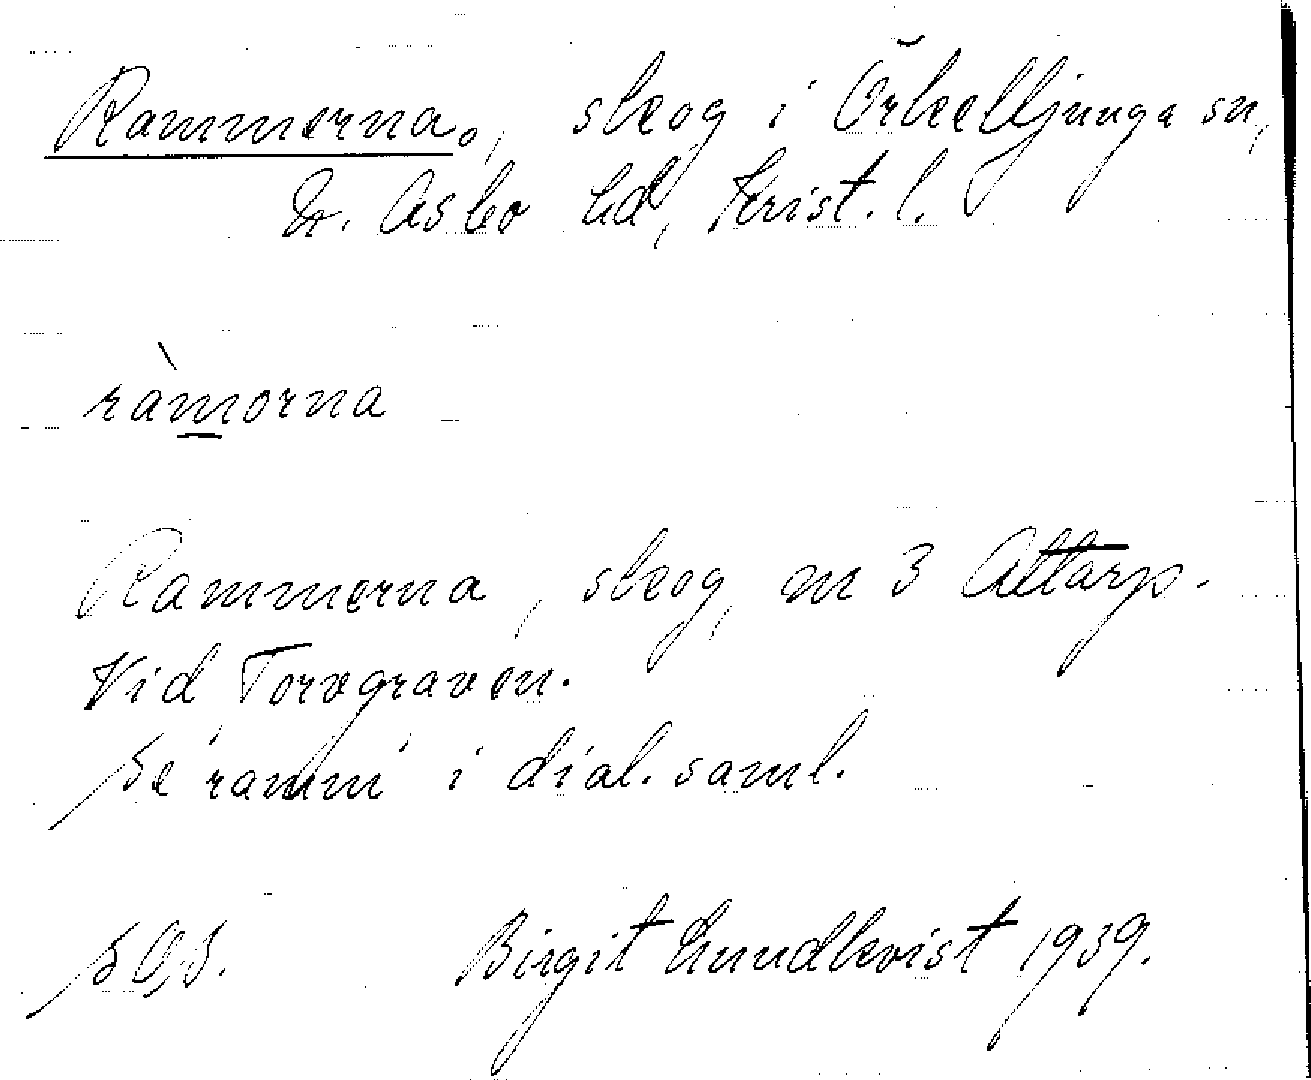 Rammerna., skog i Örkelljunga sn,
N. Åsbo hd, Krist. l.
ràmorna
Rammerna, skog, m 3 Attarp.
Vid Torvgraven.
Se 'ramm' i dial. saml.
Birgit Lundkvist 1939.